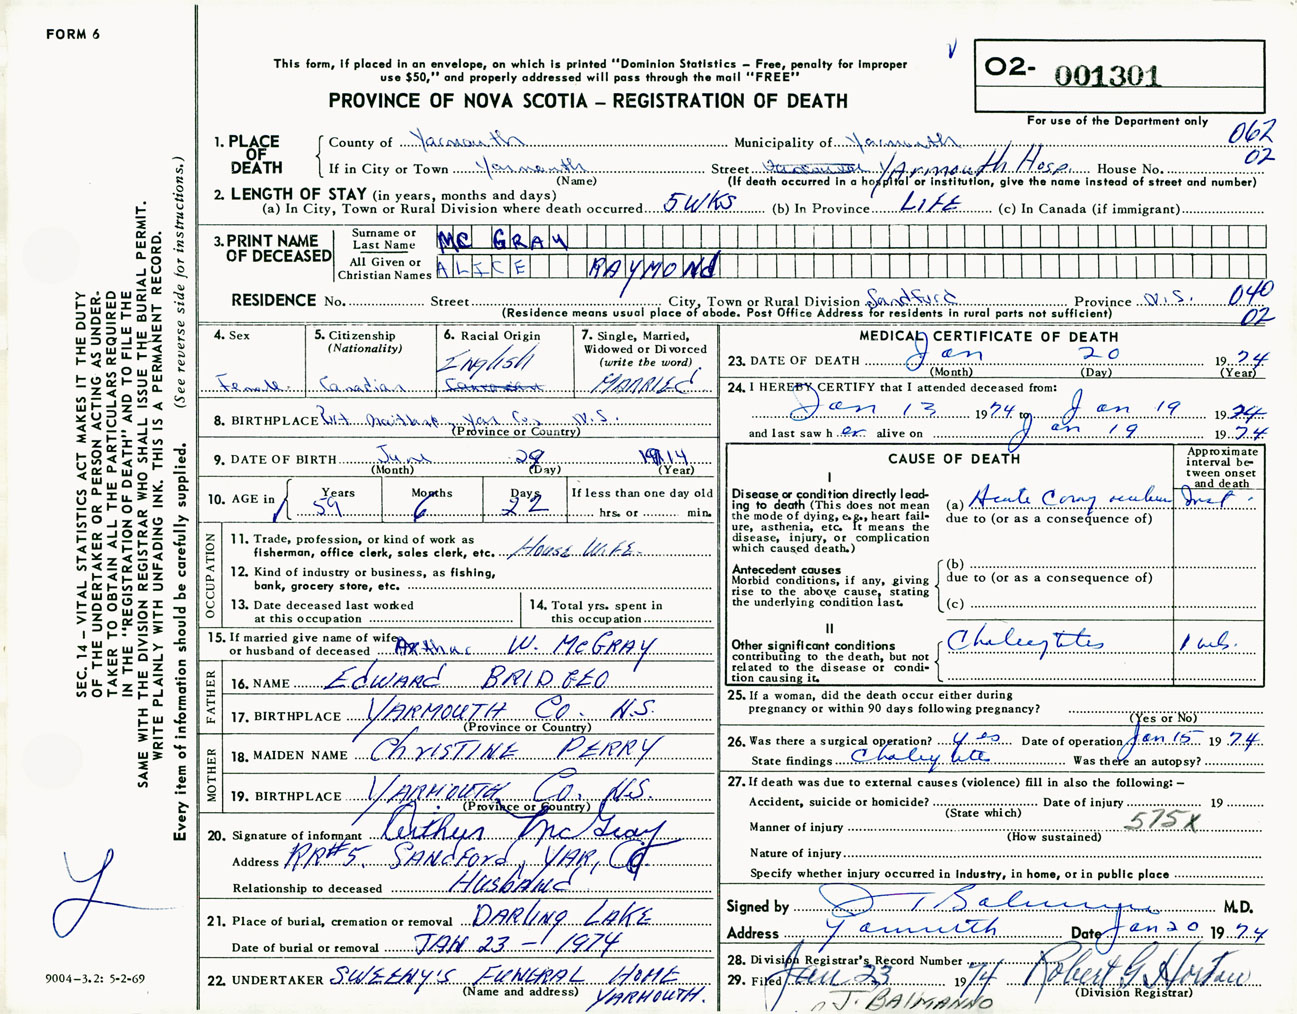 FORM 6
This form, if placed in an envelope, on which is printed "Dominion Statistics – Free, penalty for improper
use $50," and properly addressed will pass through the mail "FREE"
PROVINCE OF NOVA SCOTIA – REGISTRATION OF DEATH
O2- 001301
For use of the Department only
062
02
1. PLACE OF DEATH
County of Yarmouth Municipality of Yarmouth
If in City or Town Yarmouth Street Yarmouth Hosp. House No.
(Name) (If death occurred in a hospital or institution, give the name instead of street and number)
2. LENGTH OF STAY (in years, months and days)
(a) In City, Town or Rural Division where death occurred 5 WKS (b) In Province LIFE (c) In Canada (if immigrant)
3. PRINT NAME OF DECEASED
Surname or Last Name MC GRAY
All Given or Christian Names ALICE RAYMOND
RESIDENCE No. Street City, Town or Rural Division Sandford Province N.S. 040
(Residence means usual place of abode. Post Office Address for residents in rural parts not sufficient) 02
4. Sex Female
5. Citizenship (Nationality) Canadian
6. Racial Origin English
7. Single, Married, Widowed or Divorced (write the word) MARRIED
8. BIRTHPLACE Yar Co. N.S.
(Province or Country)
9. DATE OF BIRTH June 29 1914
(Month) (Day) (Year)
10. AGE in Years 59 Months 6 Days 22 If less than one day old hrs. or min.
OCCUPATION
11. Trade, profession, or kind of work as fisherman, office clerk, sales clerk, etc. House Wife
12. Kind of industry or business, as fishing, bank, grocery store, etc.
13. Date deceased last worked at this occupation
14. Total yrs. spent in this occupation
15. If married give name of wife or husband of deceased Arthur W. McGRAY
FATHER
16. NAME EDWARD BRIDGEO
17. BIRTHPLACE YARMOUTH Co. N.S.
(Province or Country)
MOTHER
18. MAIDEN NAME CHRISTINE PERRY
19. BIRTHPLACE YARMOUTH Co. N.S.
(Province or Country)
20. Signature of informant Arthur McGray
Address RR#5 SANDFORD, YAR, Co
Relationship to deceased Husband
21. Place of burial, cremation or removal DARLING LAKE
Date of burial or removal JAN 23 – 1974
22. UNDERTAKER SWEENY'S FUNERAL HOME
(Name and address) YARMOUTH.
MEDICAL CERTIFICATE OF DEATH
23. DATE OF DEATH Jan 20 1974
(Month) (Day) (Year)
24. I HEREBY CERTIFY that I attended deceased from:
Jan 13 1974 to Jan 19 1974
and last saw her alive on Jan 19 1974
CAUSE OF DEATH
Approximate interval between onset and death
I
Disease or condition directly leading to death (This does not mean the mode of dying, e.g., heart failure, asthenia, etc. It means the disease, injury, or complication which caused death.)
(a) Acute Inst.
due to (or as a consequence of)
Antecedent causes
Morbid conditions, if any, giving rise to the above cause, stating the underlying condition last.
(b)
due to (or as a consequence of)
(c)
II
Other significant conditions contributing to the death, but not related to the disease or condition causing it.
25. If a woman, did the death occur either during pregnancy or within 90 days following pregnancy?
(Yes or No)
26. Was there a surgical operation? yes Date of operation Jan 15 1974
State findings Was there an autopsy?
27. If death was due to external causes (violence) fill in also the following: –
Accident, suicide or homicide? Date of injury 19
(State which)
Manner of injury 575X
(How sustained)
Nature of injury
Specify whether injury occurred in Industry, in home, or in public place
Signed by M.D.
Address Yarmouth Date Jan 20 1974
28. Division Registrar's Record Number
29. Filed Jan 23 1974 Robert G. Horton
(Division Registrar)
J. BALMANNO
SEC. 14 – VITAL STATISTICS ACT MAKES IT THE DUTY
OF THE UNDERTAKER OR PERSON ACTING AS UNDER-
TAKER TO OBTAIN ALL THE PARTICULARS REQUIRED
IN THE "REGISTRATION OF DEATH" AND TO FILE THE
SAME WITH THE DIVISION REGISTRAR WHO SHALL ISSUE THE BURIAL PERMIT.
WRITE PLAINLY WITH UNFADING INK. THIS IS A PERMANENT RECORD.
Every item of Information should be carefully supplied. (See reverse side for instructions.)
9004-3.2: 5-2-69